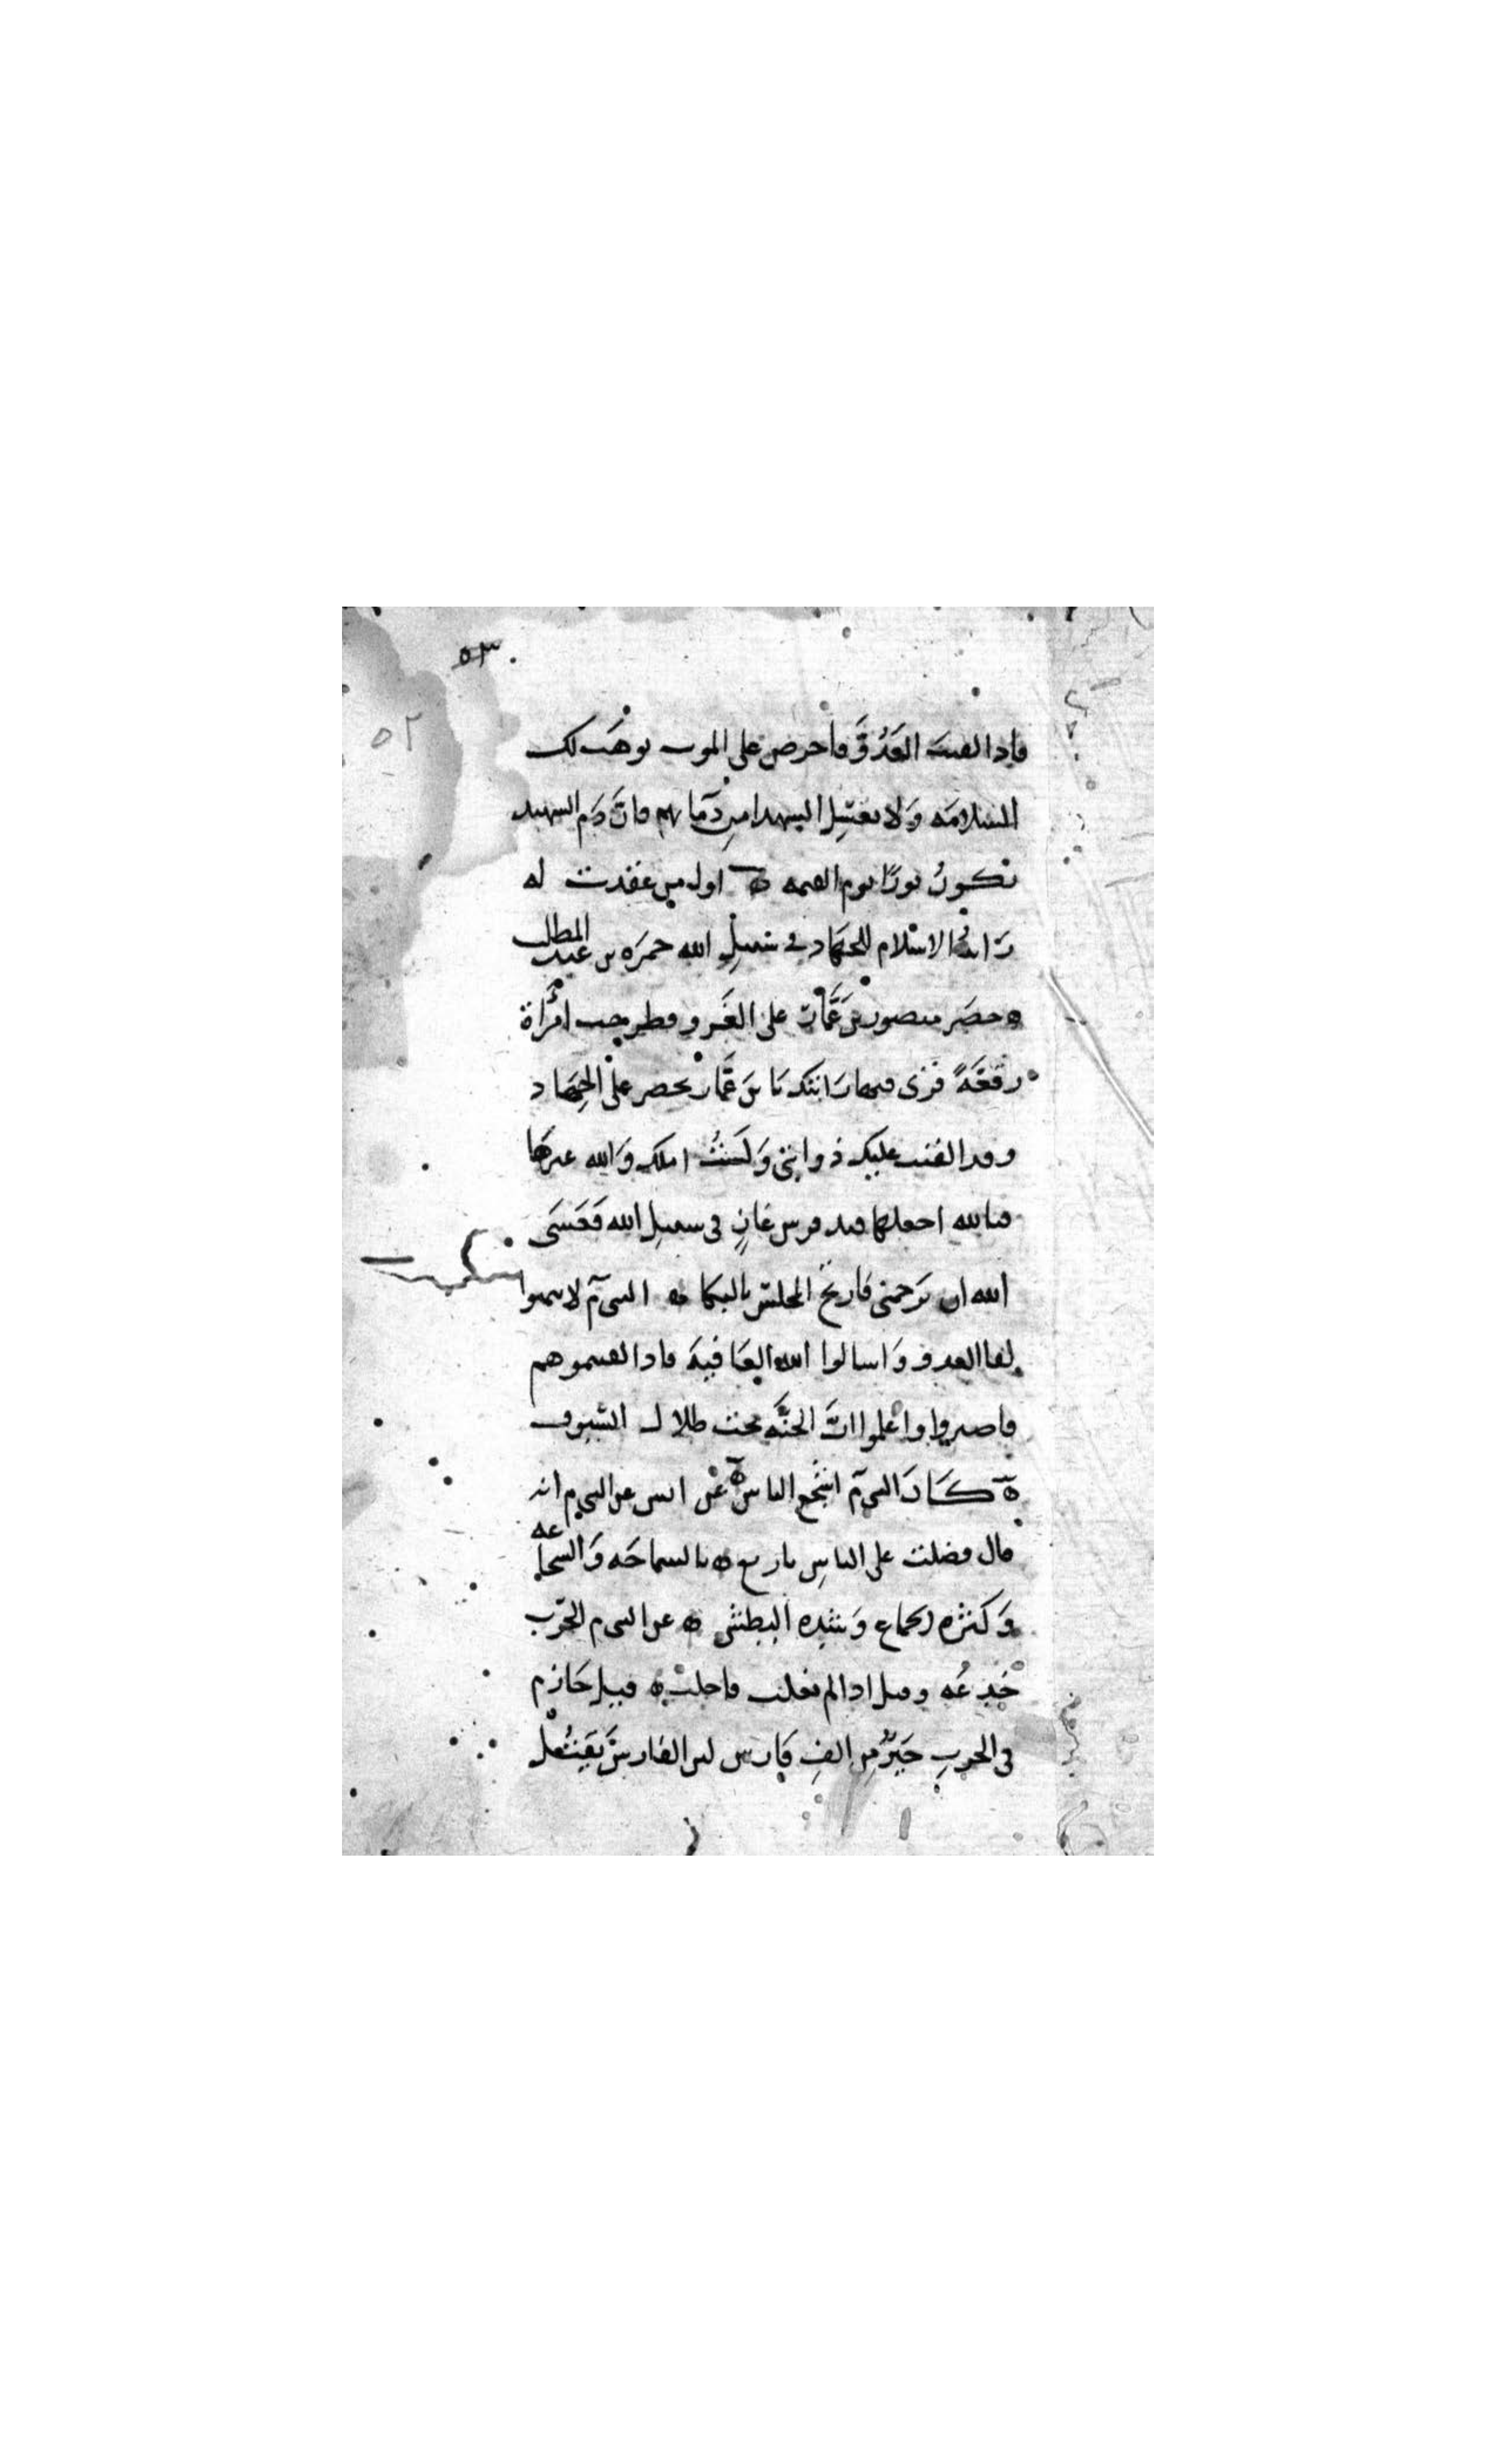 ٥٣
٥٢
فاذا لقيت العَدُوَّ فاحرص على الموت توهَب لك
السلامَه وَلا تغسِل الشهدا من دمآيهم فانَّ دَم الشهيد
يكونُ نورًا يوم القيمه ه اول من عقدت له
رَايةُ الاسلام للجهَاد في سَبيلِ الله حمزَه بن عبد المطلب
ه حضَر منصور بنَ عَمَّار على الغَزو وطرحت امرَأة
رقعَةً فرَى فيها رَايتك يَا بنَ عَمَّار تحض على الجِهَاد
وقد القيت عليك ذوابتى وَلَستُ املك وَالله غيرَها
فبالله اجعلها قيد فرس غازٍ فى سبيلِ الله فَعَسَى
الله ان يَرحمنى فارتج المجلس بالبكا ه النبى م لا تتمنوا
لقا العدو وَاسالوا الله العَافيهَ فاذا لقيتموهم
فاصبروا واعلموا انَّ الجنَّه تحت ظلال السُّيوف
ه كَانَ النبى م اشجَع الناس ه عَن انس عن النبى م انه
قال فضلت على الناسِ باربع ه بالسماحَه وَالشجاعه
وَكثره الجماع وَشده البطش ه عن النبى م الحَرب
خُدعَه وقيل اذا لم تغلب فاخلب ه قيل حَازم
فى الحربِ خَيرٌ من الفِ فارس لان الفارسَ يَقتُل